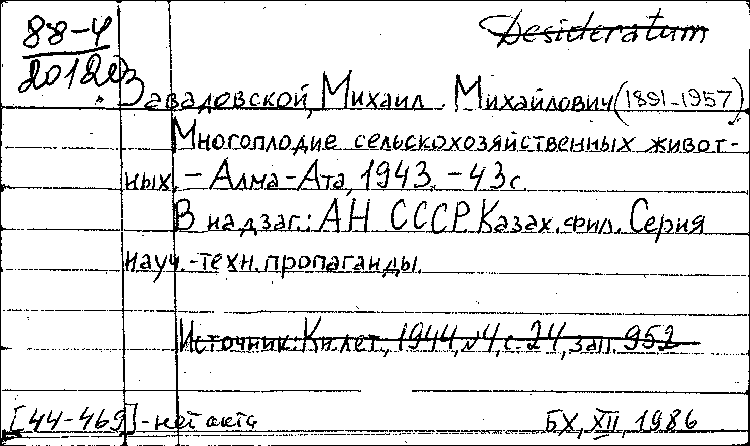 88-4
~~Desideratum~~
20120
Завадовской, Михаил Михайлович (1891-1957)
Многоплодие сельскохозяйственных живот-
ных. - Алма-Ата, 1943. - 43 с.
В надзаг.: АН СССР. Казах. фил. Серия
науч.-техн. пропаганды.
~~Источник: Кн. лет., 1944, №4, с. 24, зап. 952~~
[44-469] - нет акта
БХ, XII, 1986